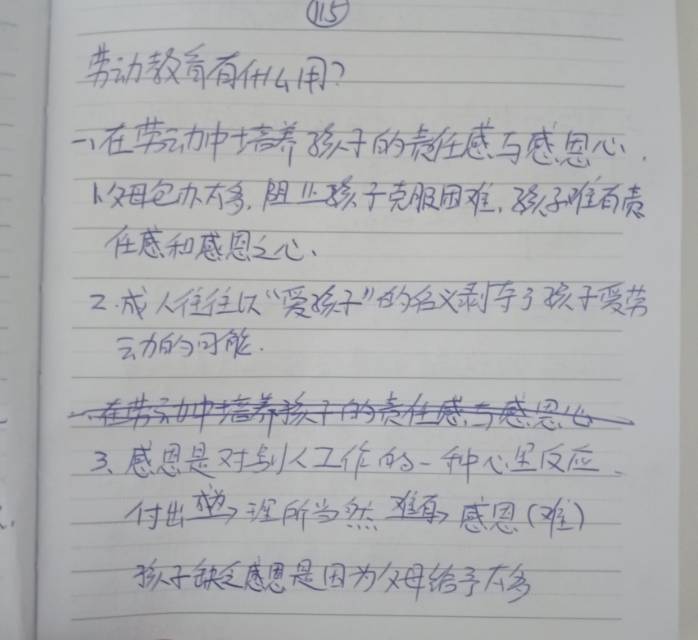 115
劳动教育有什么用？
一、在劳动中培养孩子的责任感与感恩心.
1、父母包办太多,阻止孩子克服困难,孩子难有责
任感和感恩之心、
2.成人往往以“爱孩子”的名义剥夺了孩子爱劳
动的可能.
一、在劳动中培养孩子的责任感与感恩心
3、感恩是对别人工作的一种心里反应、
付出 成为→ 理所当然 难有→ 感恩(难)
孩子缺乏感恩是因为父母给予太多